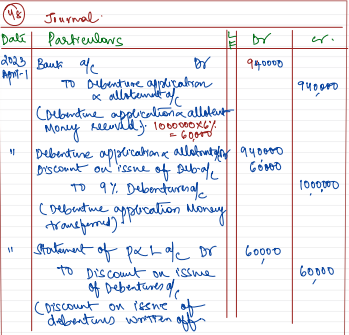 48 Journal.
Date Particulars LF Dr cr.
2023 April-1 Bank a/c Dr 940000
To Debenture application & allotment a/c 940,000
(Debenture application & allotment
Money received) 1000000x6%
= 60,000
" Debenture application & allotment a/c Dr 940000
Discount on issue of Deb a/c 60000
To 9% Debentures a/c 1000,000
(Debenture application Money
transferred)
" Statement of P & L a/c Dr 60000
To Discount on issue
of Debentures a/c 60000
(Discount on issue of
debentures written off